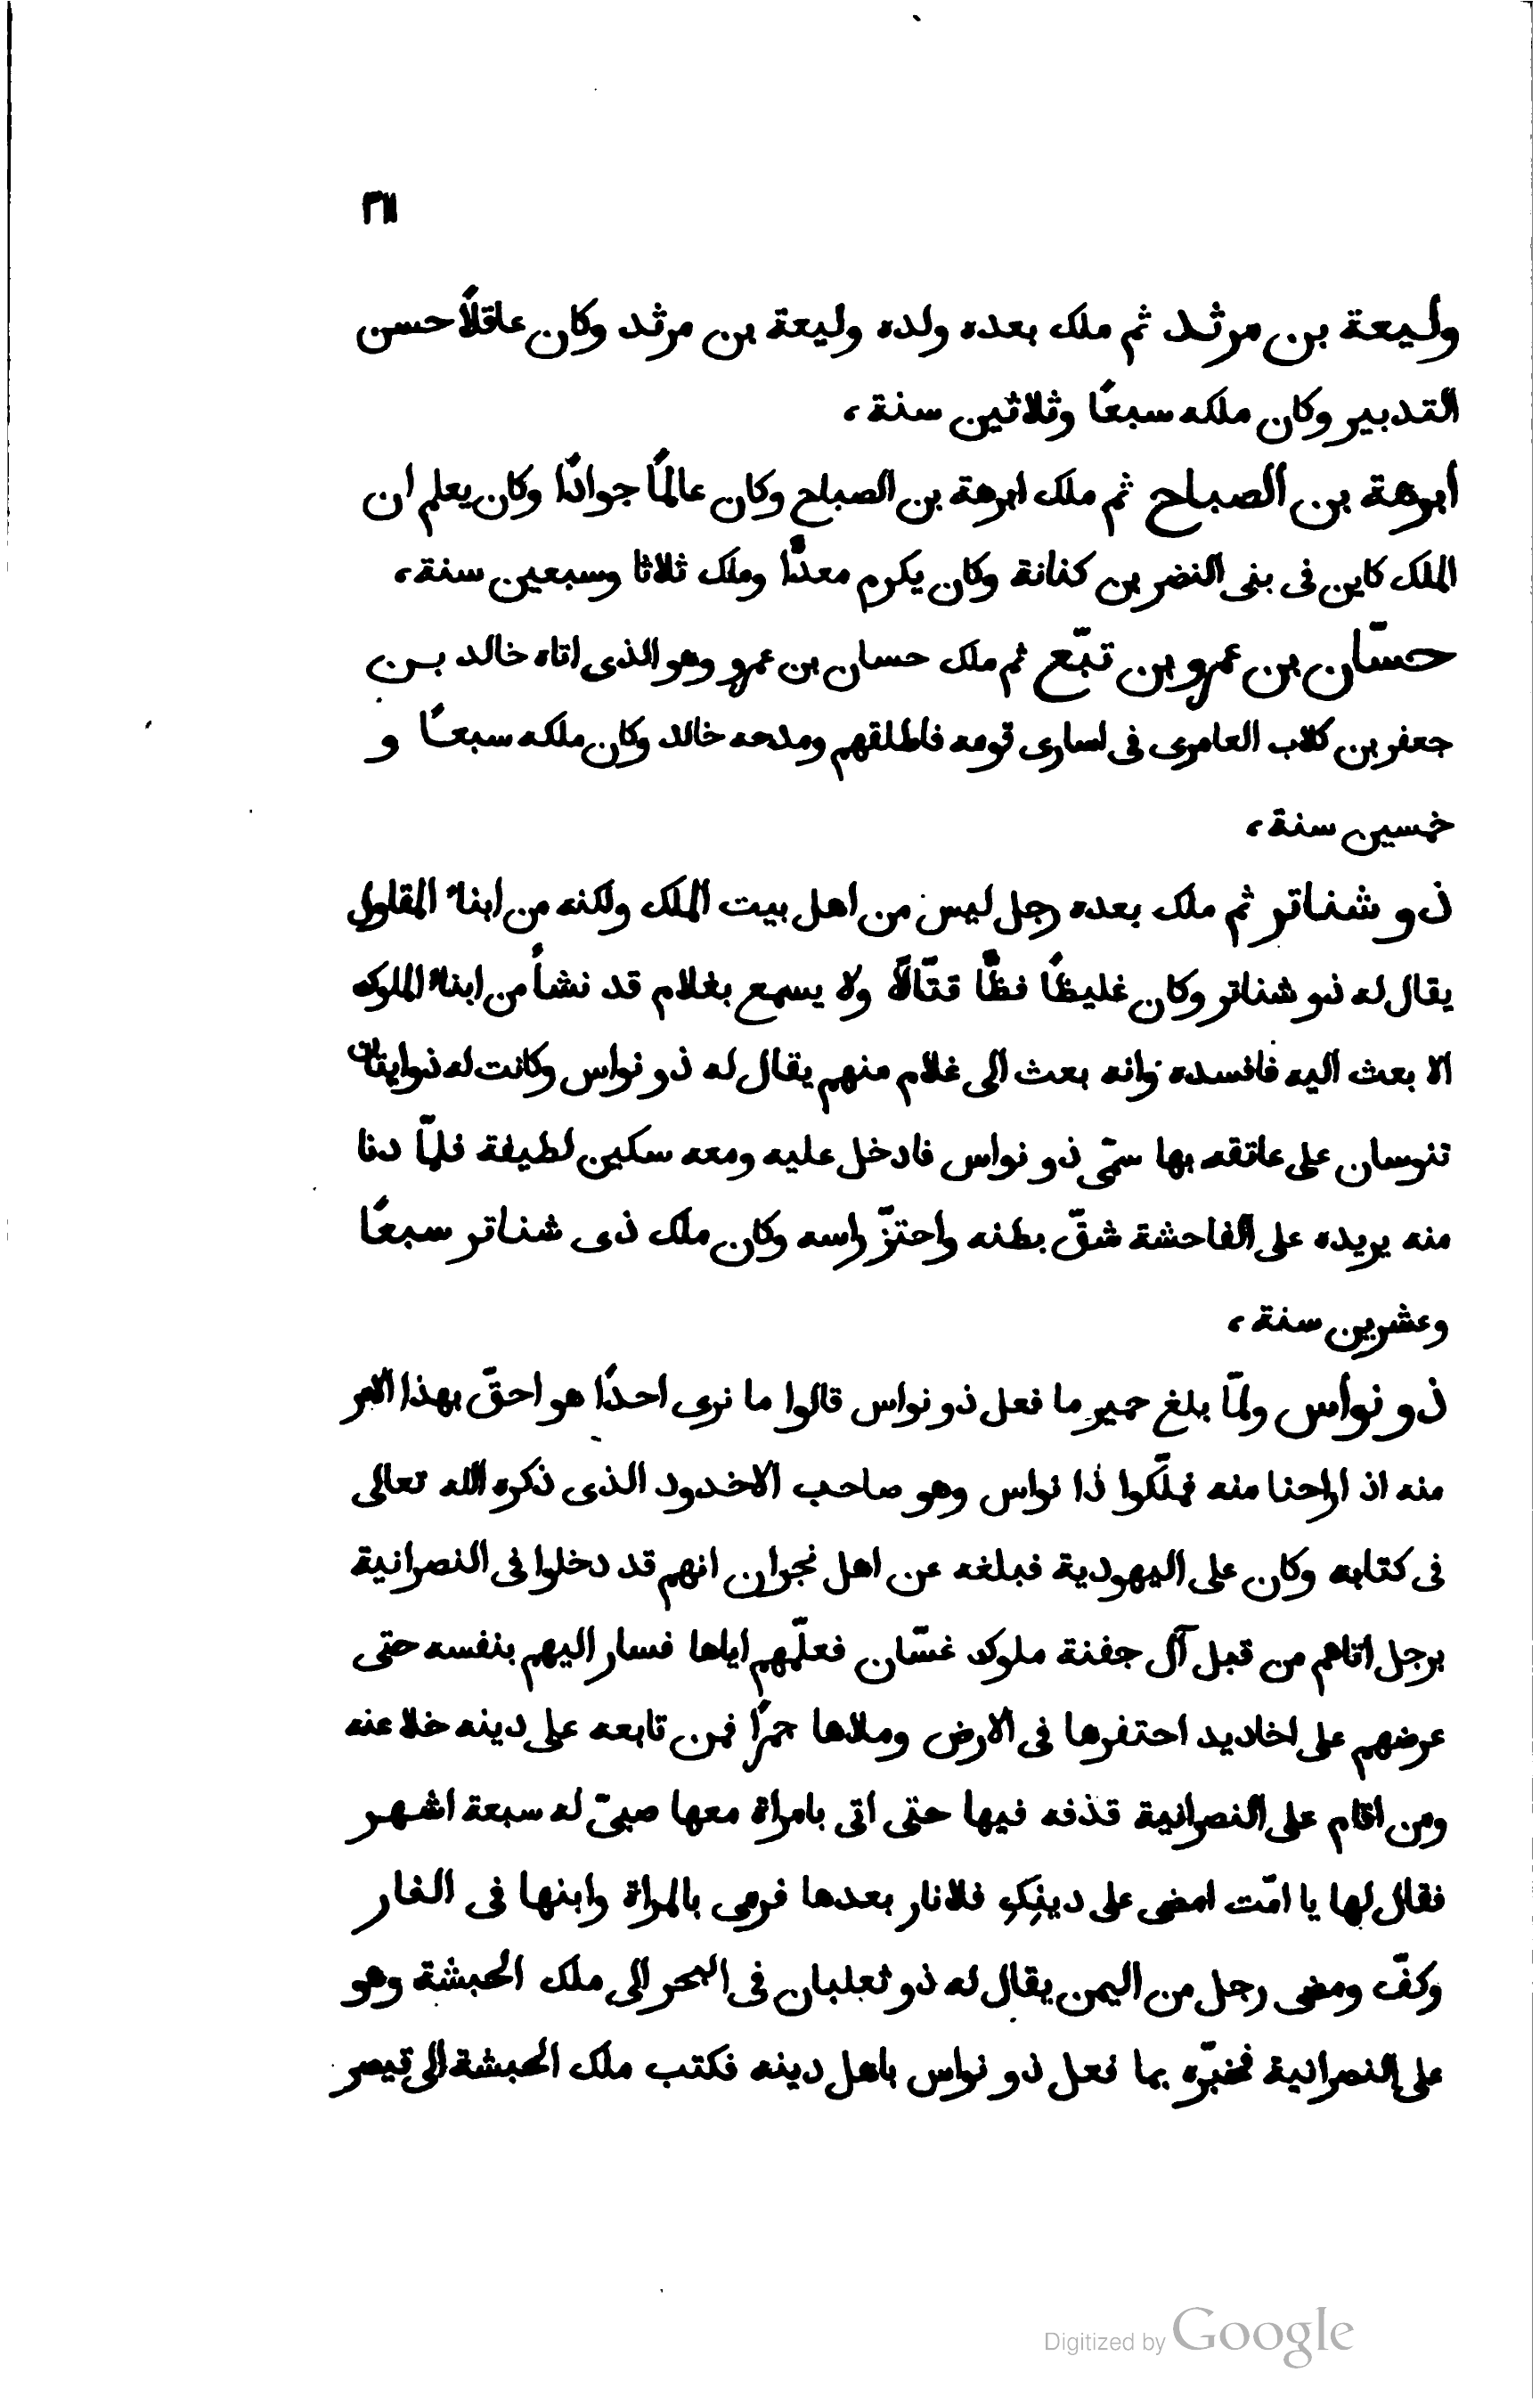 ٣١١
وليعة بن مرثد ثم ملك بعده ولده وليعة بن مرثد وكان عاقلًا حسن
التدبير وكان ملكه سبعًا وثلاثين سنة،
ابرهة بن الصباح ثم ملك ابرهة بن الصباح وكان عالمًا جوادًا وكان يعلم ان
الملك كاين فى بنى النضر بن كنانة وكان يكرم معدًّا وملك ثلاثا وسبعين سنة،
حسّان بن عمرو بن تبّع ثم ملك حسان بن عمرو وهو الذى اتاه خالد بن
جعفر بن كلاب العامرى فى اسارى قومه فاطلقهم ومدحه خالد وكان ملكه سبعًا و
خمسين سنة،
ذو شناتر ثم ملك بعده رجل ليس من اهل بيت الملك ولكنه من ابناء المقاول
يقال له ذو شناتر وكان غليظًا فظًّا قتّالًا ولا يسمع بغلام قد نشأ من ابناء الملوك
الا بعث اليه فافسده وانه بعث الى غلام منهم يقال له ذو نواس وكانت له ذوابتان
تنوسان على عاتقه بها سمّى ذو نواس فادخل عليه ومعه سكين لطيفة فلمّا دنا
منه يريده على الفاحشة شقّ بطنه واحتزّ راسه وكان ملك ذى شناتر سبعًا
وعشرين سنة،
ذو نواس ولمّا بلغ حمير ما فعل ذو نواس قالوا ما نرى احدًا هو احقّ بهذا الامر
منه اذ اراحنا منه فملّكوا ذا نواس وهو صاحب الاخدود الذى ذكره الله تعالى
فى كتابه وكان على اليهودية فبلغه عن اهل نجران انهم قد دخلوا فى النصرانية
برجل اتاهم من قبل آل جفنة ملوك غسّان فعلّمهم اياها فسار اليهم بنفسه حتى
عرضهم على اخاديد احتفرها فى الارض وملاها جمرًا فمن تابعه على دينه خلا عنه
ومن اقام على النصرانية قذفه فيها حتى اتى بامراة معها صبىّ له سبعة اشهر
فقال لها يا امّت امضى على دينِكِ فلا نار بعدها فرمى بالمراة وابنها فى النار
وكفّ ومضى رجل من اليمن يقال له ذو ثعلبان فى البحر الى ملك الحبشة وهو
على النصرانية فخبّره بما فعل ذو نواس باهل دينه فكتب ملك الحبشة الى قيصر
Digitized by Google